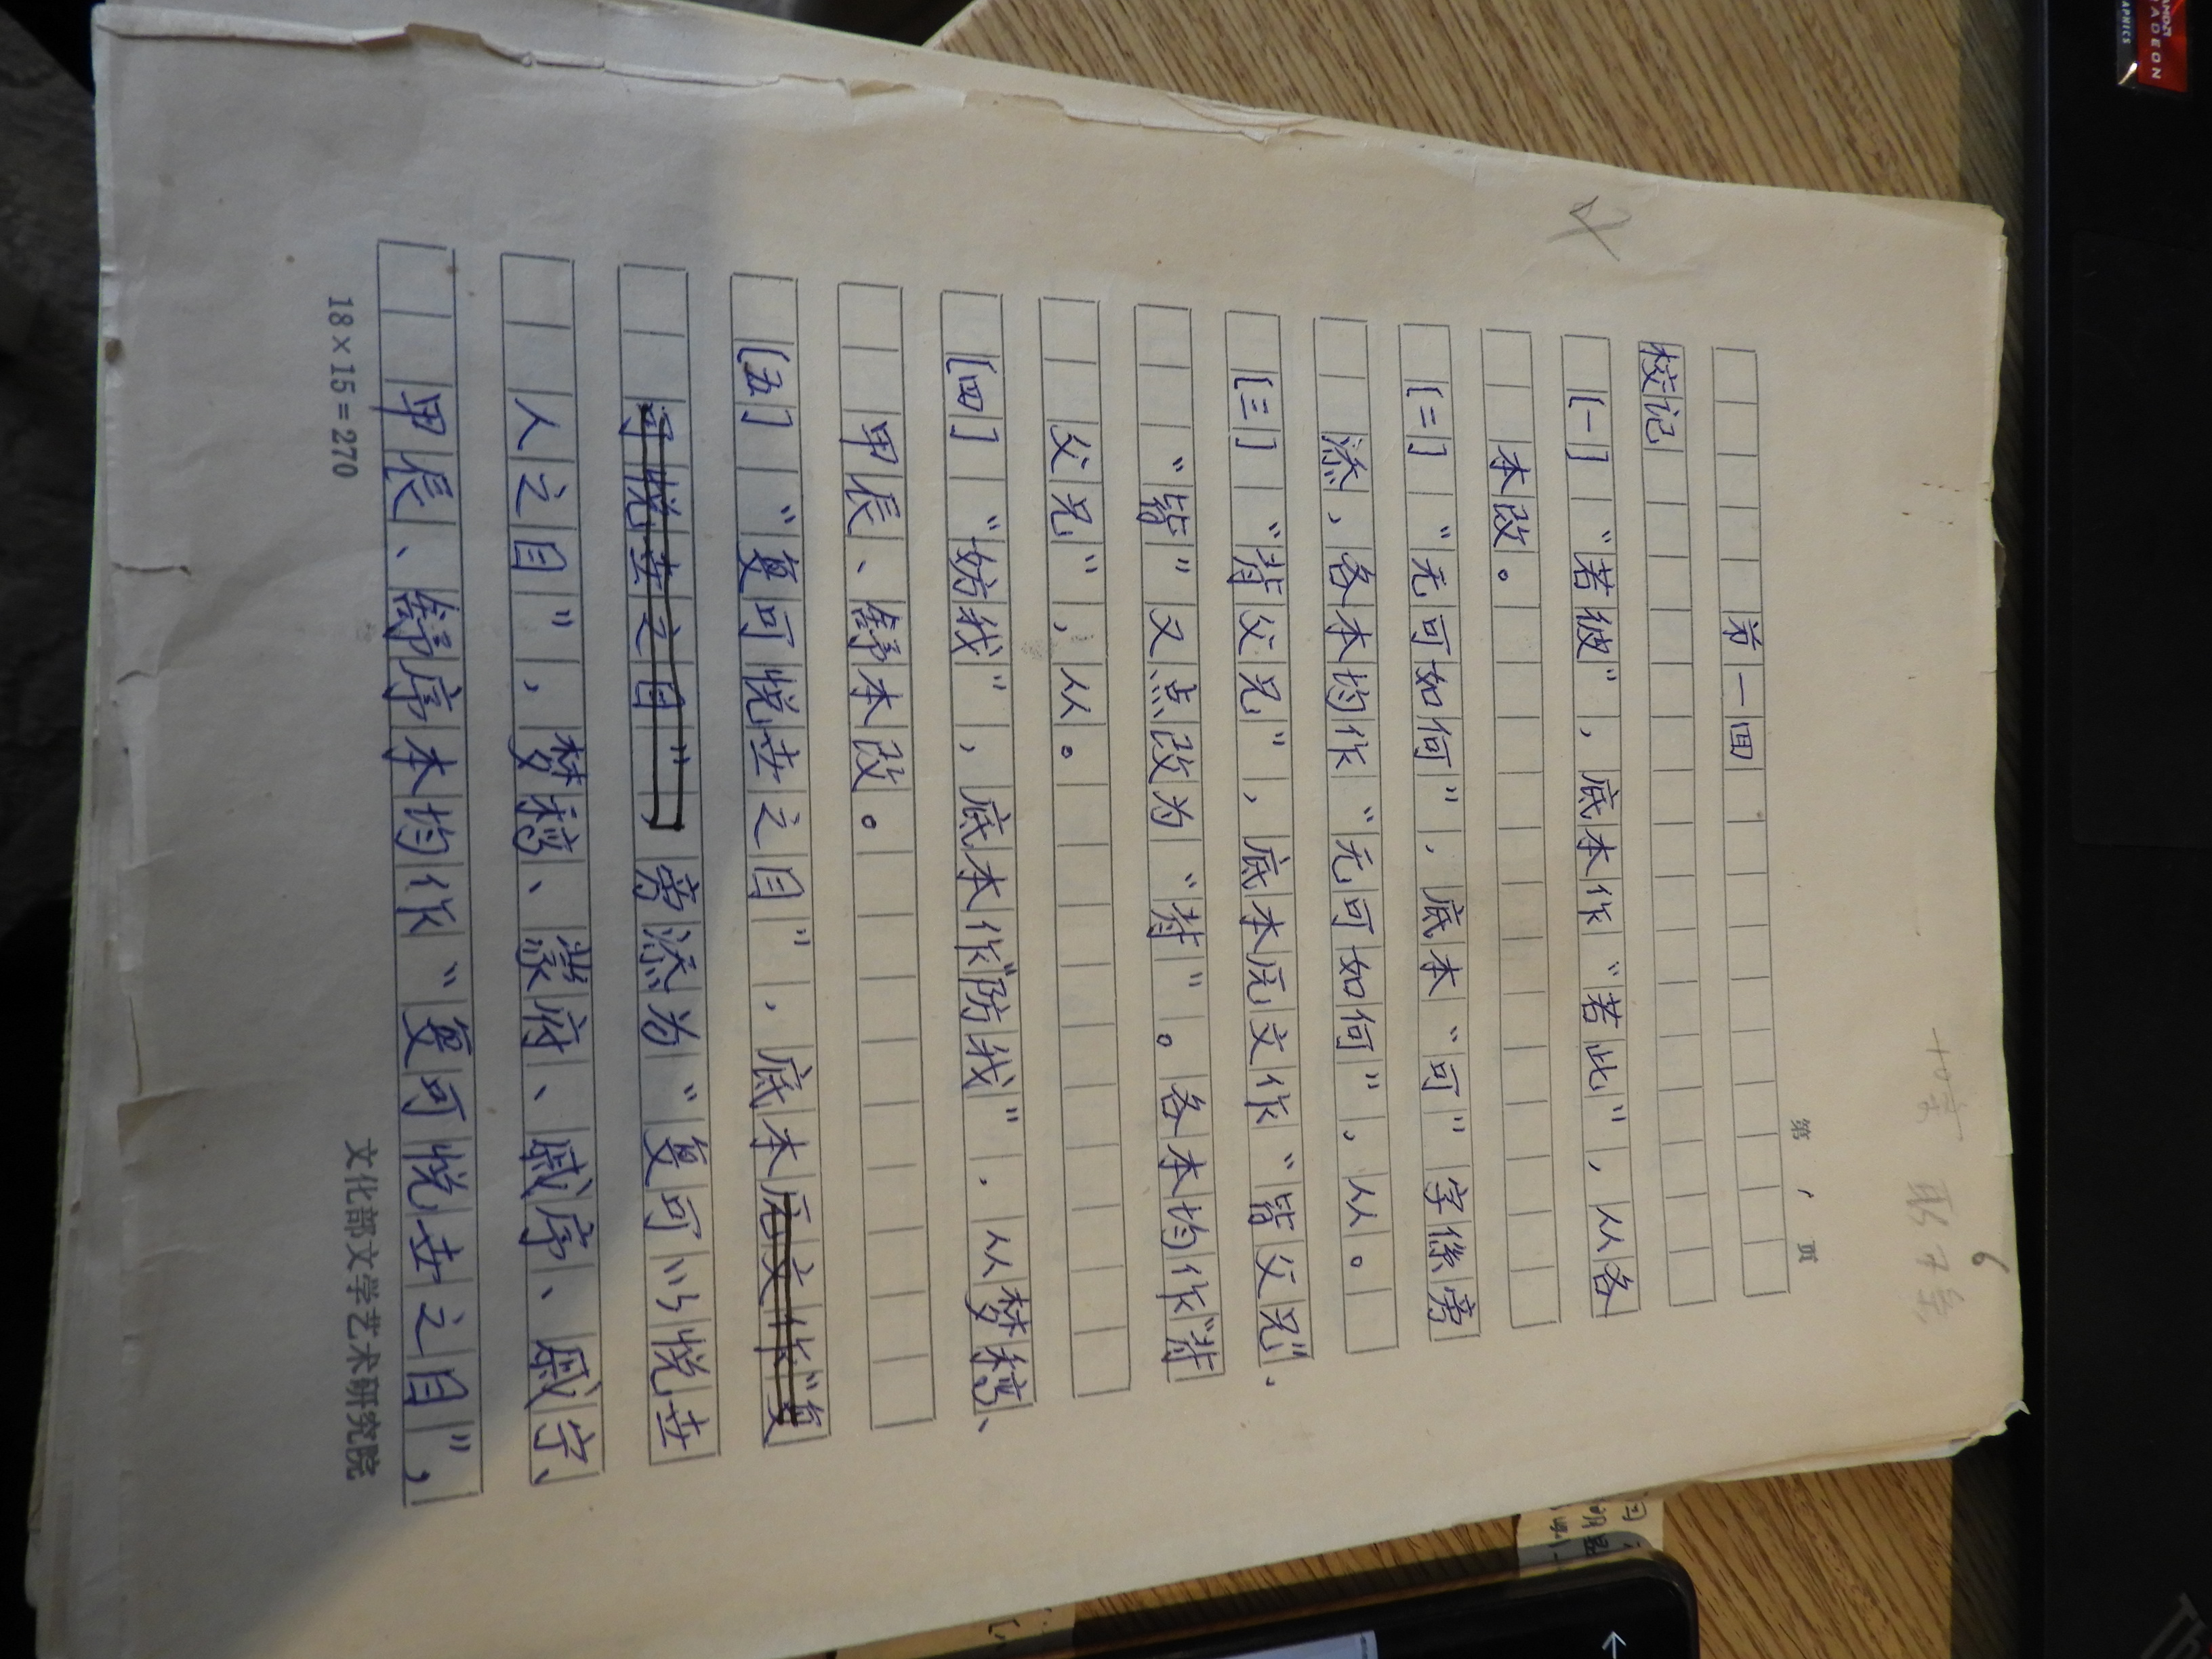 第 页
第一回
校记
[一] “若彼”，底本作“若此”，从各
本改。
[二] “无可如何”，底本“可”字係旁
添，各本均作“无可如何”，从。
[三] “背父兄”，底本原文作“皆父兄”，
“皆”又点改为“背”。各本均作“背
父兄”，从。
[四] “妨我”，底本作“防我”，从梦稿、
甲辰、舒本改。
[五] “复可悦世之目”，底本原文作“复
可悦世之目”，旁添为“复可以悦世
人之目”，梦稿、蒙府、戚序、戚宁、
甲辰、舒序本均作“复可悦世之目”，
18×15=270
文化部文学艺术研究院
AMD
RADEON
GRAPHICS
Th